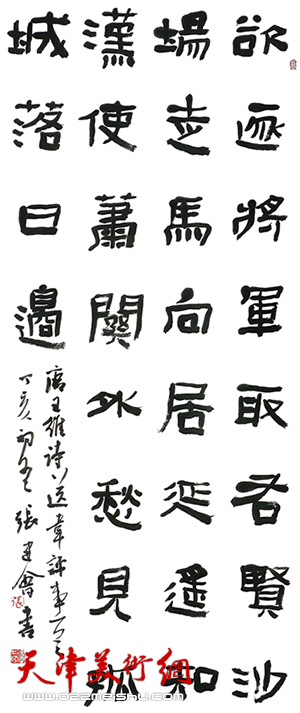 欲逐將軍取右賢沙
場走馬向居延遙知
漢使蕭關外愁見孤
城落日邊
唐王維詩送韋評事
丁亥初冬張建會書
天津美術網
www.022meishu.com